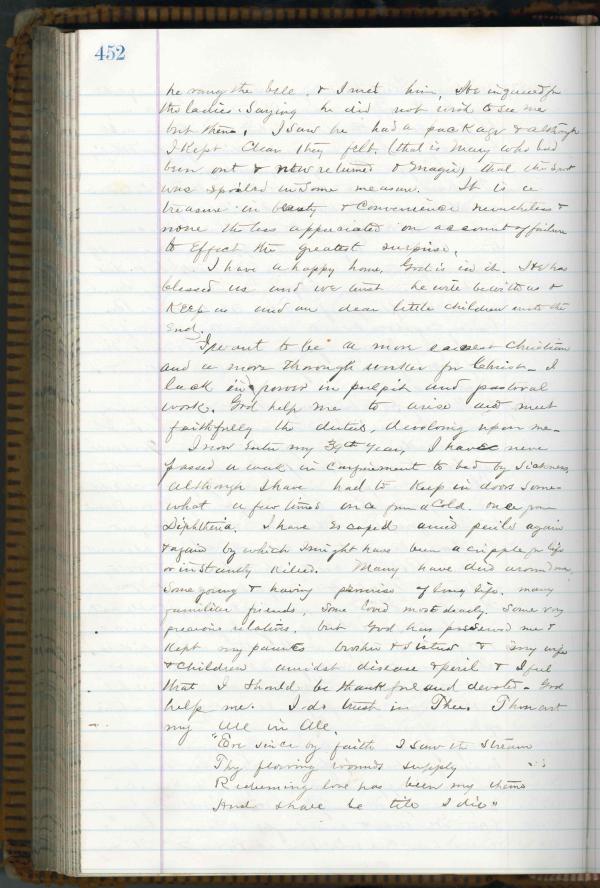 452
he rang the bell, & I met him, He inquired for
the ladies. Saying he did not wish to see me
but them, I saw he had a package & although
I kept clear they felt, (that is many who had
been out & now returned & Magie) that the
was spoiled in some measure. It is a
treasure in beauty & convenience nevertheless &
none the less appreciated on account of failure
to Effect the greatest surprise.
I have a happy home. God is in it. He has
blessed us and we trust he will be with us &
Keep us and our dear little children unto the
End.
I want to be a more earnest Christian
and a more thorough worker for Christ - I
lack in power in pulpit and pastoral
work. God help me to arise and meet
faithfully the duties, devolving upon me -
I now Enter my 39th year, I have never
passed a week in confinement to bed by sickness,
although I have had to keep in doors some
what a few times once from a Cold. once from
Diphtheria. I have Escaped amid perils again
& again by which I might have been a cripple for life
or instantly killed. Many have died around me,
some young & having promise of long life, many
familiar friends, some loved most dearly. Some very
precious relatives, but God has preserved me &
kept my parents brother & sisters & my wife
& children amidst disease & peril & I feel
that I should be thankful and devoted - God
help me. I do trust in Thee. Thou art
my All in All.
"Ere since by faith I saw the stream
Thy flowing wounds supply
Redeeming love has been my theme
And shall be till I die"